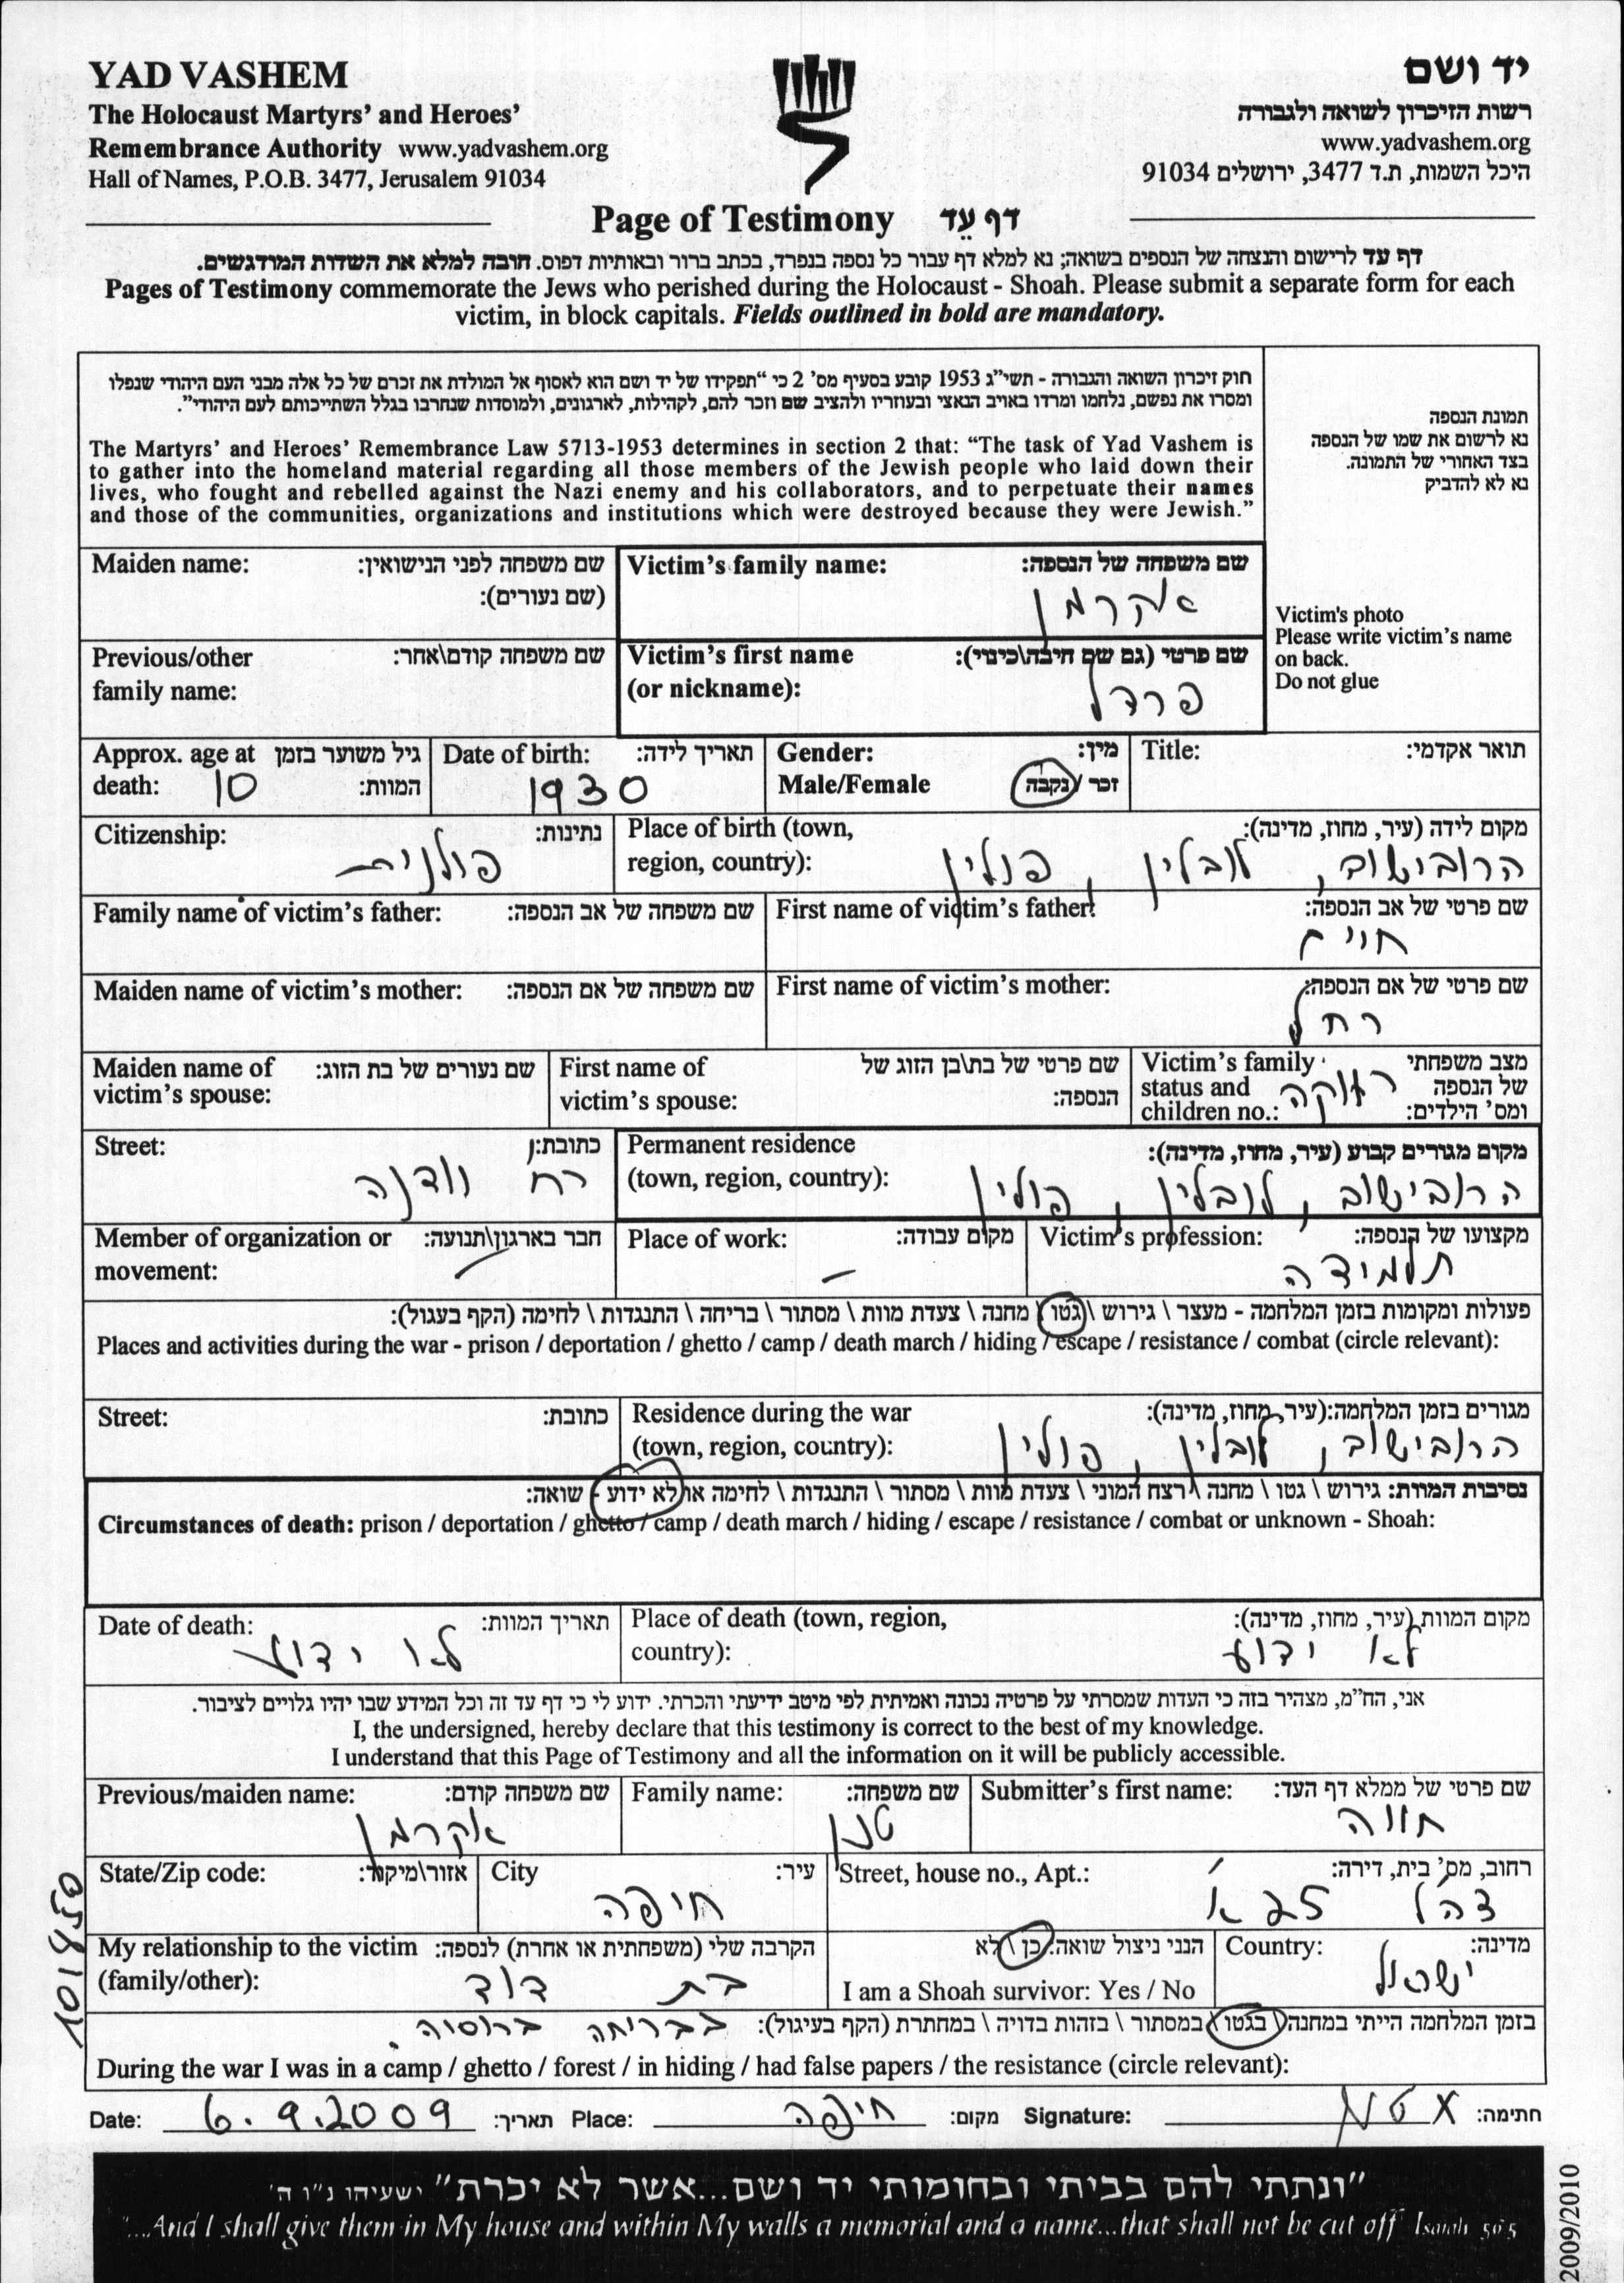 YAD VASHEM
The Holocaust Martyrs' and Heroes'
Remembrance Authority www.yadvashem.org
Hall of Names, P.O.B. 3477, Jerusalem 91034
יד ושם
רשות הזיכרון לשואה ולגבורה
www.yadvashem.org
היכל השמות, ת.ד 3477, ירושלים 91034
Page of Testimony דף עֵד
דף עד לרישום והנצחה של הנספים בשואה; נא למלא דף עבור כל נספה בנפרד, בכתב ברור ובאותיות דפוס. חובה למלא את השדות המודגשים.
Pages of Testimony commemorate the Jews who perished during the Holocaust - Shoah. Please submit a separate form for each
victim, in block capitals. Fields outlined in bold are mandatory.
חוק זיכרון השואה והגבורה - תשי"ג 1953 קובע בסעיף מס' 2 כי "תפקידו של יד ושם הוא לאסוף אל המולדת את זכרם של כל אלה מבני העם היהודי שנפלו
ומסרו את נפשם, נלחמו ומרדו באויב הנאצי ובעוזריו ולהציב שם וזכר להם, לקהילות, לארגונים, ולמוסדות שנחרבו בגלל השתייכותם לעם היהודי".
The Martyrs' and Heroes' Remembrance Law 5713-1953 determines in section 2 that: "The task of Yad Vashem is
to gather into the homeland material regarding all those members of the Jewish people who laid down their
lives, who fought and rebelled against the Nazi enemy and his collaborators, and to perpetuate their names
and those of the communities, organizations and institutions which were destroyed because they were Jewish."
תמונת הנספה
נא לרשום את שמו של הנספה
בצד האחורי של התמונה.
נא לא להדביק
Victim's photo
Please write victim's name
on back.
Do not glue
Maiden name: שם משפחה לפני הנישואין:
(שם נעורים):
Victim's family name: שם משפחה של הנספה:
אקרמן
Previous/other שם משפחה קודם\אחר:
family name:
Victim's first name שם פרטי (גם שם חיבה\כינוי):
(or nickname): פרדל
Approx. age at גיל משוער בזמן
death: 10 המוות:
Date of birth: תאריך לידה:
1930
Gender: מין:
Male/Female זכר / נקבה
Title: תואר אקדמי:
Citizenship: נתינות:
פולנית
Place of birth (town, מקום לידה (עיר, מחוז, מדינה):
region, country): הרובישוב, לובלין, פולין
Family name of victim's father: שם משפחה של אב הנספה:
First name of victim's father: שם פרטי של אב הנספה:
חיים
Maiden name of victim's mother: שם משפחה של אם הנספה:
First name of victim's mother: שם פרטי של אם הנספה:
רחל
Maiden name of שם נעורים של בת הזוג:
victim's spouse:
First name of שם פרטי של בת\בן הזוג של
victim's spouse: הנספה:
Victim's family מצב משפחתי
status and של הנספה
children no.: ומס' הילדים:
רווקה
Street: כתובת:
רח וודנה
Permanent residence מקום מגורים קבוע (עיר, מחוז, מדינה):
(town, region, country): הרובישוב, לובלין, פולין
Member of organization or חבר בארגון\תנועה:
movement:
Place of work: מקום עבודה:
—
Victim's profession: מקצועו של הנספה:
תלמידה
פעולות ומקומות בזמן המלחמה - מעצר \ גירוש \ גטו \ מחנה \ צעדת מוות \ מסתור \ בריחה \ התנגדות \ לחימה (הקף בעגול):
Places and activities during the war - prison / deportation / ghetto / camp / death march / hiding / escape / resistance / combat (circle relevant):
Street: כתובת:
Residence during the war מגורים בזמן המלחמה:(עיר, מחוז, מדינה):
(town, region, country): הרובישוב, לובלין, פולין
נסיבות המוות: גירוש \ גטו \ מחנה \ רצח המוני \ צעדת מוות \ מסתור \ התנגדות \ לחימה או לא ידוע - שואה:
Circumstances of death: prison / deportation / ghetto / camp / death march / hiding / escape / resistance / combat or unknown - Shoah:
Date of death: תאריך המוות:
לא ידוע
Place of death (town, region, מקום המוות (עיר, מחוז, מדינה):
country): לא ידוע
אני, הח"מ, מצהיר בזה כי העדות שמסרתי על פרטיה נכונה ואמיתית לפי מיטב ידיעתי והכרתי. ידוע לי כי דף עד זה וכל המידע שבו יהיו גלויים לציבור.
I, the undersigned, hereby declare that this testimony is correct to the best of my knowledge.
I understand that this Page of Testimony and all the information on it will be publicly accessible.
Previous/maiden name: שם משפחה קודם:
אקרמן
Family name: שם משפחה:
טנן
Submitter's first name: שם פרטי של ממלא דף העד:
חווה
State/Zip code: אזור\מיקוד:
City עיר:
חיפה
Street, house no., Apt.: רחוב, מס' בית, דירה:
צה"ל 25 א'
My relationship to the victim הקרבה שלי (משפחתית או אחרת) לנספה:
(family/other): בת דוד
הנני ניצול שואה: כן \ לא
I am a Shoah survivor: Yes / No
Country: מדינה:
ישראל
בזמן המלחמה הייתי במחנה \ בגטו \ במסתור \ בזהות בדויה \ במחתרת (הקף בעיגול): בבריחה ברוסיה.
During the war I was in a camp / ghetto / forest / in hiding / had false papers / the resistance (circle relevant):
Date: 6.9.2009 תאריך: Place: חיפה מקום: Signature: חתימה:
"ונתתי להם בביתי ובחומותי יד ושם...אשר לא יכרת" ישעיהו נ"ו ה'
"...And I shall give them in My house and within My walls a memorial and a name...that shall not be cut off" Isaiah 56:5
101850
2009/2010